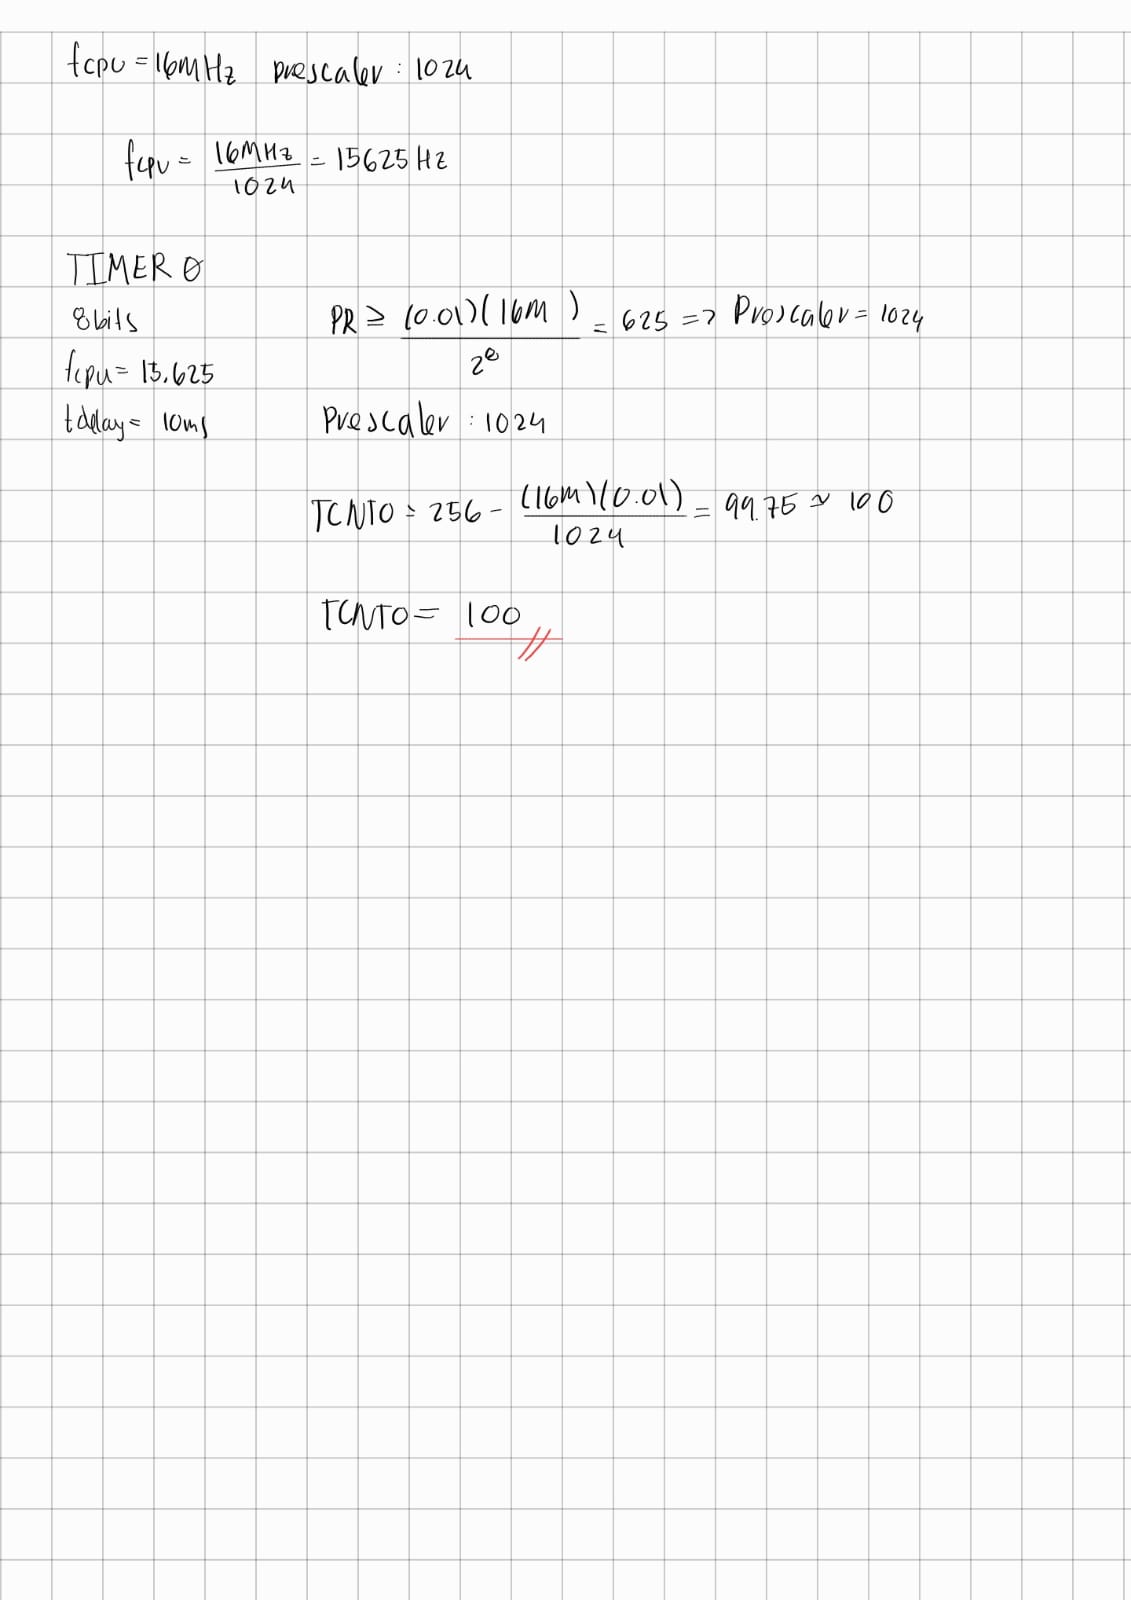 fcpu = 16MHz prescaler : 1024
fcpu = 16MHz / 1024 = 15625 Hz
TIMER 0
8bits
fcpu = 15.625
tdelay = 10ms
PR ≥ (0.01)(16M ) / 2^8 = 625 => Prescaler = 1024
Prescaler : 1024
TCNT0 = 256 - (16M)(0.01) / 1024 = 99.75 ≈ 100
TCNT0 = 100